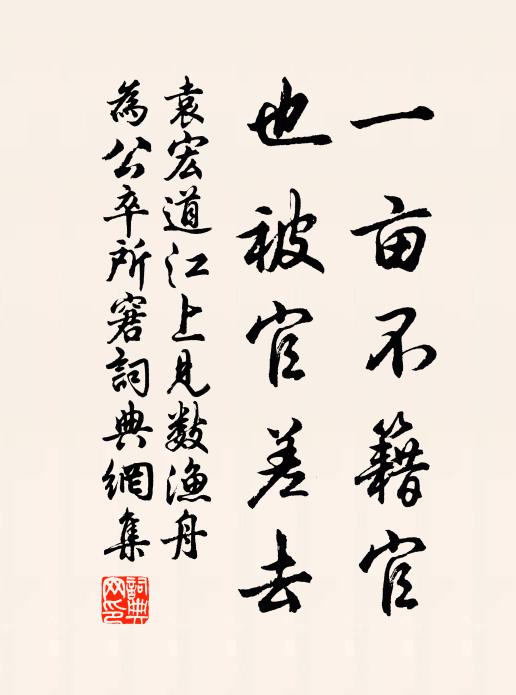 一亩不籍官
也被官差去
袁宏道江上见数渔舟
為公卒所窘詞典網集
詞典网印